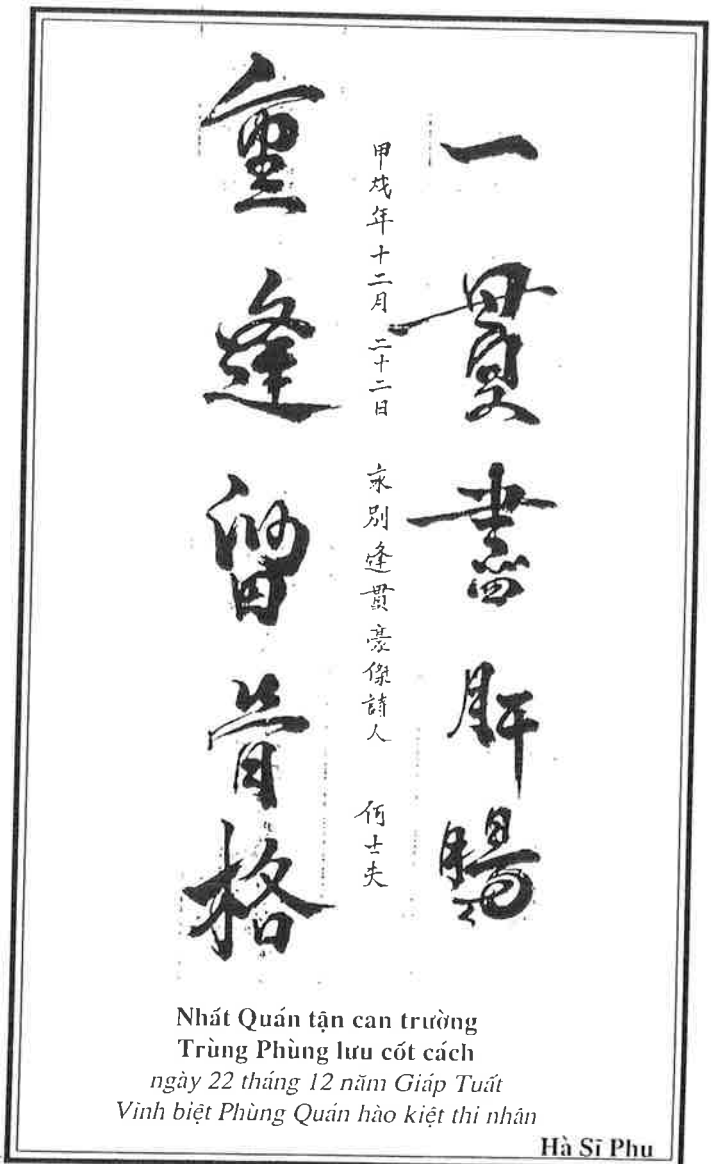 一貫盡肝腸
甲戌年十二月 二十二日 永別逢貫豪傑詩人 何士夫
重逢留骨格
Nhất Quán tận can trường
Trùng Phùng lưu cốt cách
ngày 22 tháng 12 năm Giáp Tuất
Vĩnh biệt Phùng Quán hào kiệt thi nhân
Hà Sĩ Phu